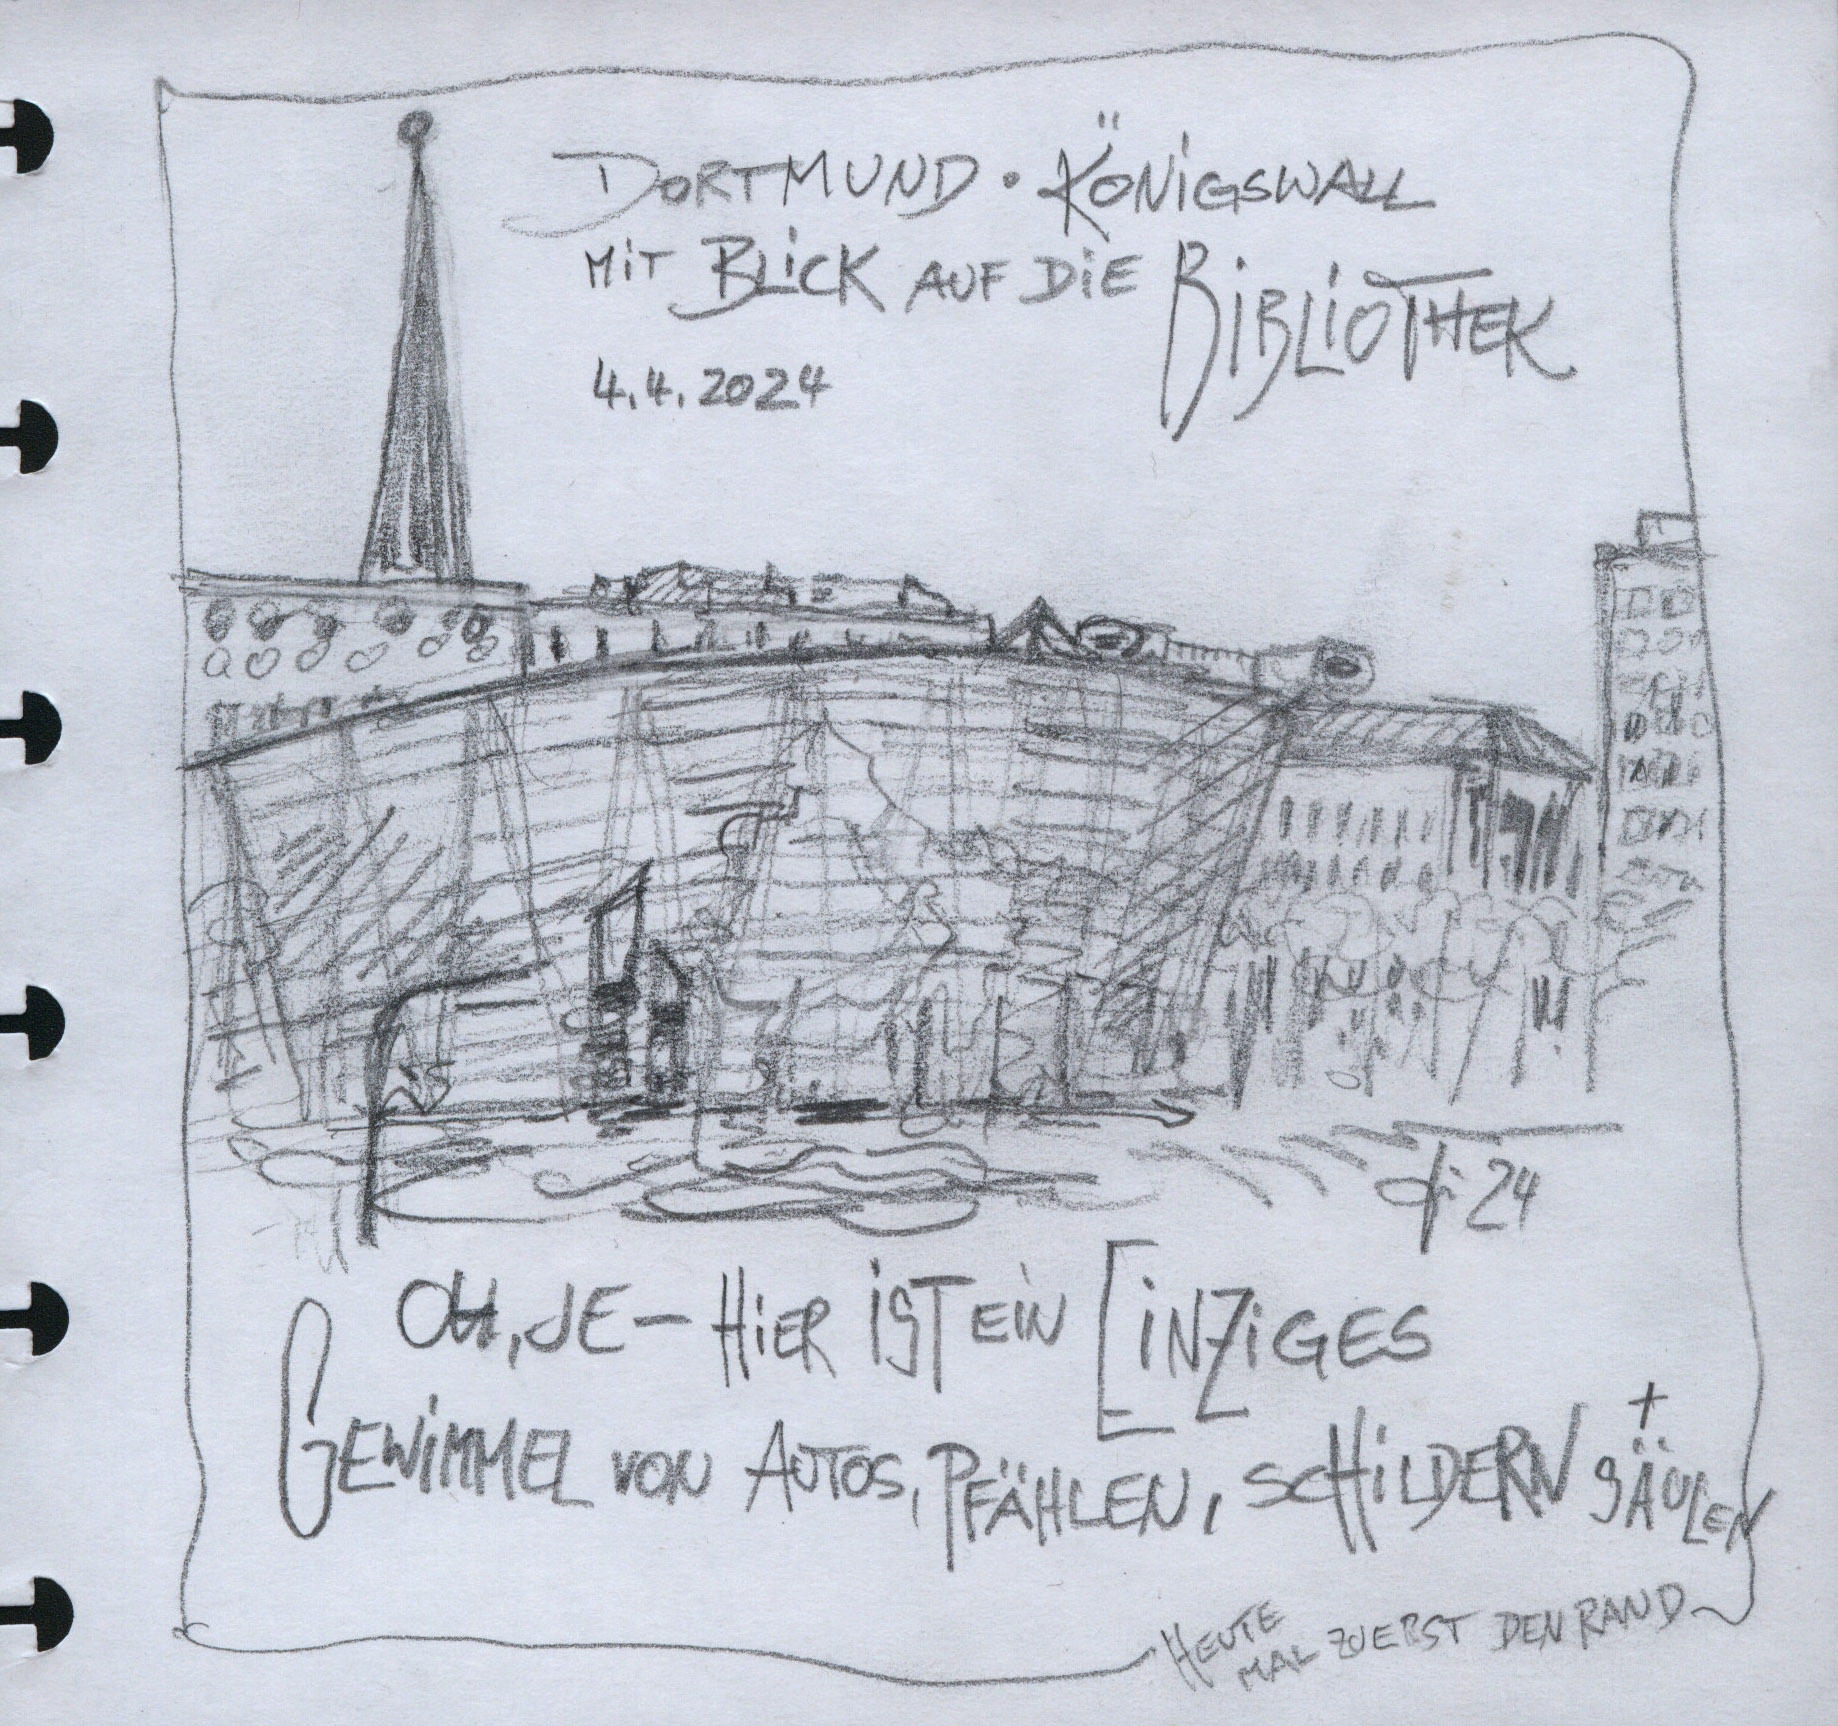 DORTMUND • KÖNIGSWALL
MIT BLICK AUF DIE BIBLIOTHEK
4.4.2024
24
OH, JE – HIER IST EIN EINZIGES
GEWIMMEL VON AUTOS, PFÄHLEN, SCHILDERN + SÄULEN
HEUTE
MAL ZUERST DEN RAND